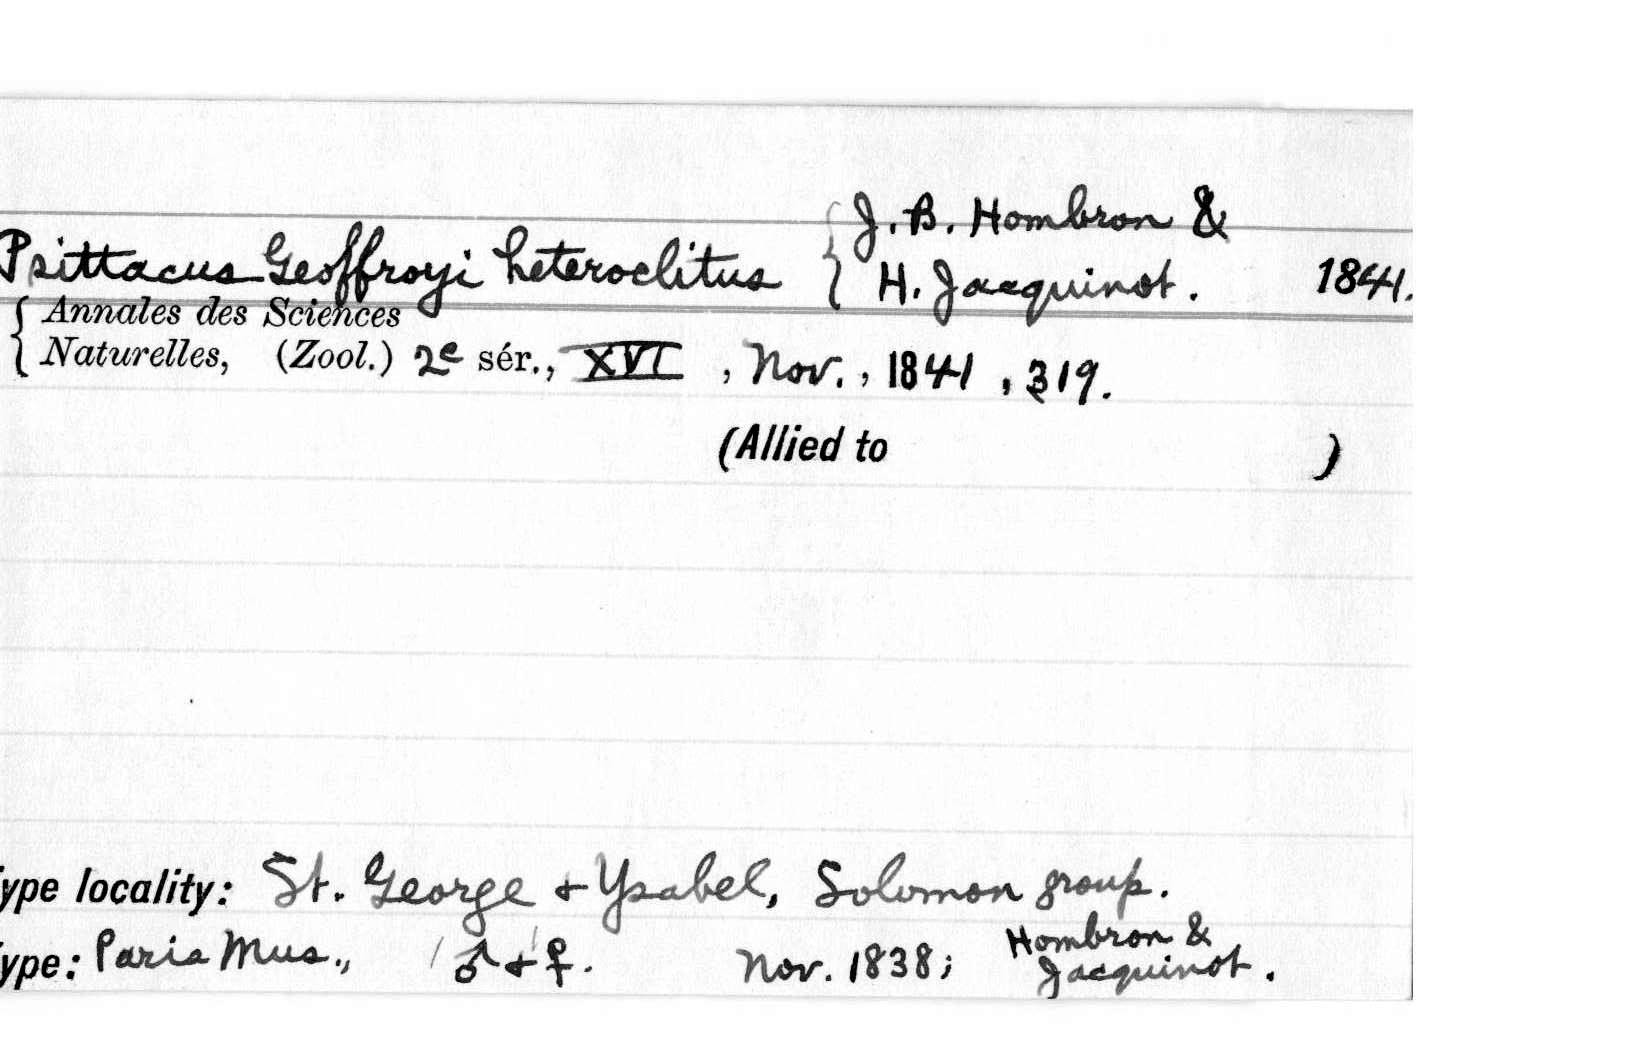 { J. B. Hombron &
Psittacus Geoffroyi heteroclitus { H. Jacquinot. 1841.
{ Annales des Sciences
{ Naturelles, (Zool.) 2e sér., XVI , Nov., 1841 , 319.
(Allied to )
ype locality: St. George & Ysabel, Solomon group.
Hombron &
ype: Paris Mus., ♂ & ♀. Nov. 1838; Jacquinot.